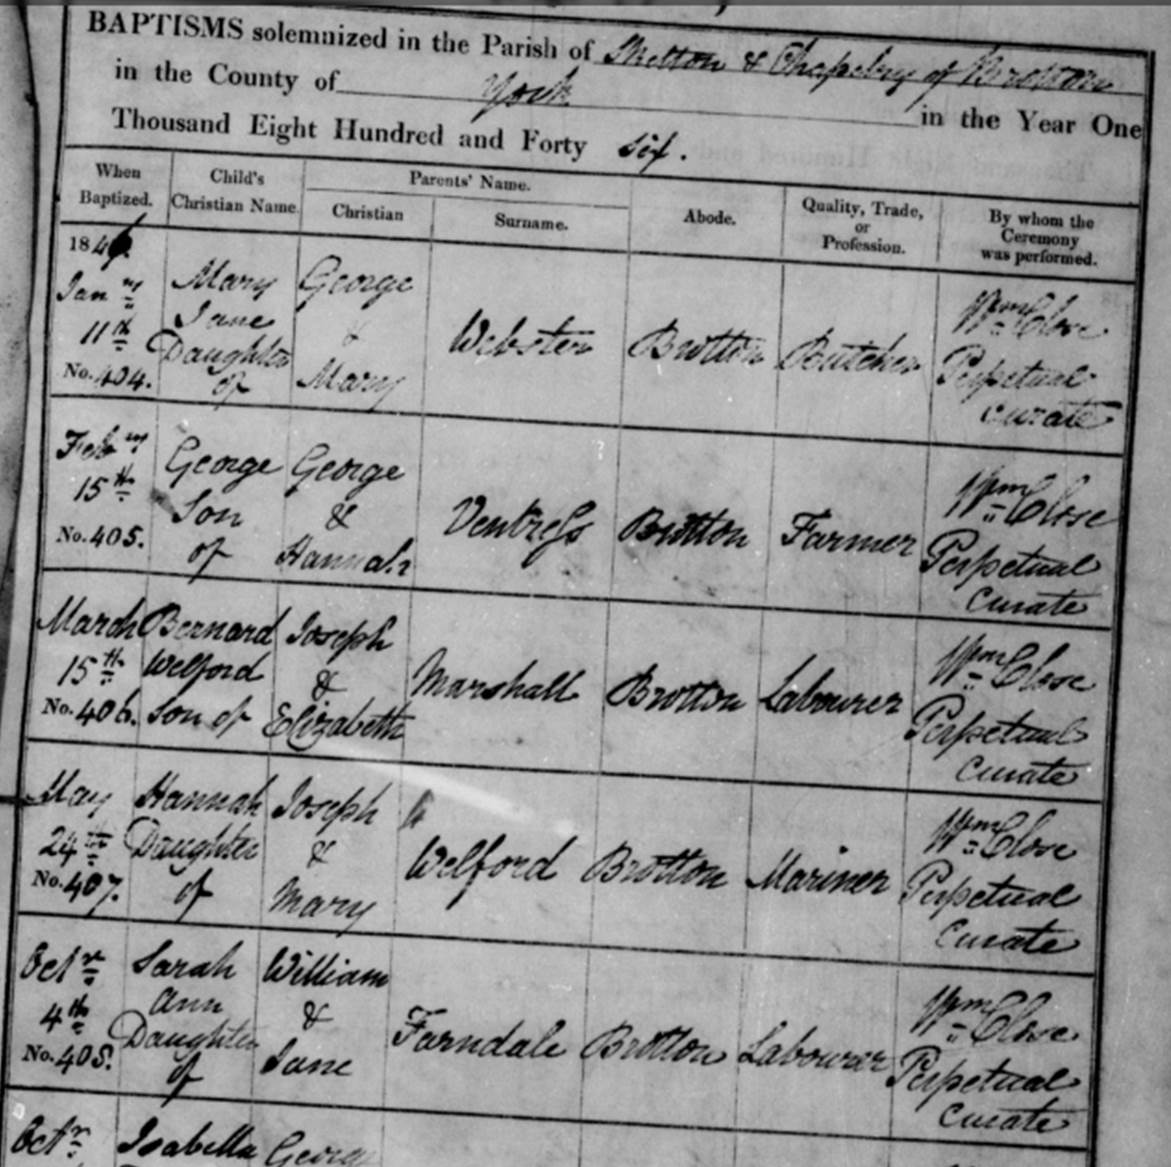 BAPTISMS solemnized in the Parish of Skelton & Chapelry of Brotton
in the County of York in the Year One
Thousand Eight Hundred and Forty six.
When Baptized.
Child's Christian Name.
Parents' Name.
Christian
Surname.
Abode.
Quality, Trade, or Profession.
By whom the Ceremony was performed.
1846.
Jan ry
11th
No. 404.
Mary
Jane
Daughter
of
George
&
Mary
Webster
Brotton
Butcher
Wm Close
Perpetual
Curate
Feb ry
15th
No. 405.
George
Son
of
George
&
Hannah
Ventress
Brotton
Farmer
Wm Close
Perpetual
Curate
March
15th
No. 406.
Bernard
Welford
Son of
Joseph
&
Elizabeth
Marshall
Brotton
Labourer
Wm Close
Perpetual
Curate
May
24th
No. 407.
Hannah
Daughter
of
Joseph
&
Mary
Welford
Brotton
Mariner
Wm Close
Perpetual
Curate
Octr
4th
No. 408.
Sarah
Ann
Daughter
of
William
&
Jane
Farndale
Brotton
Labourer
Wm Close
Perpetual
Curate
Octr
Isabella
George